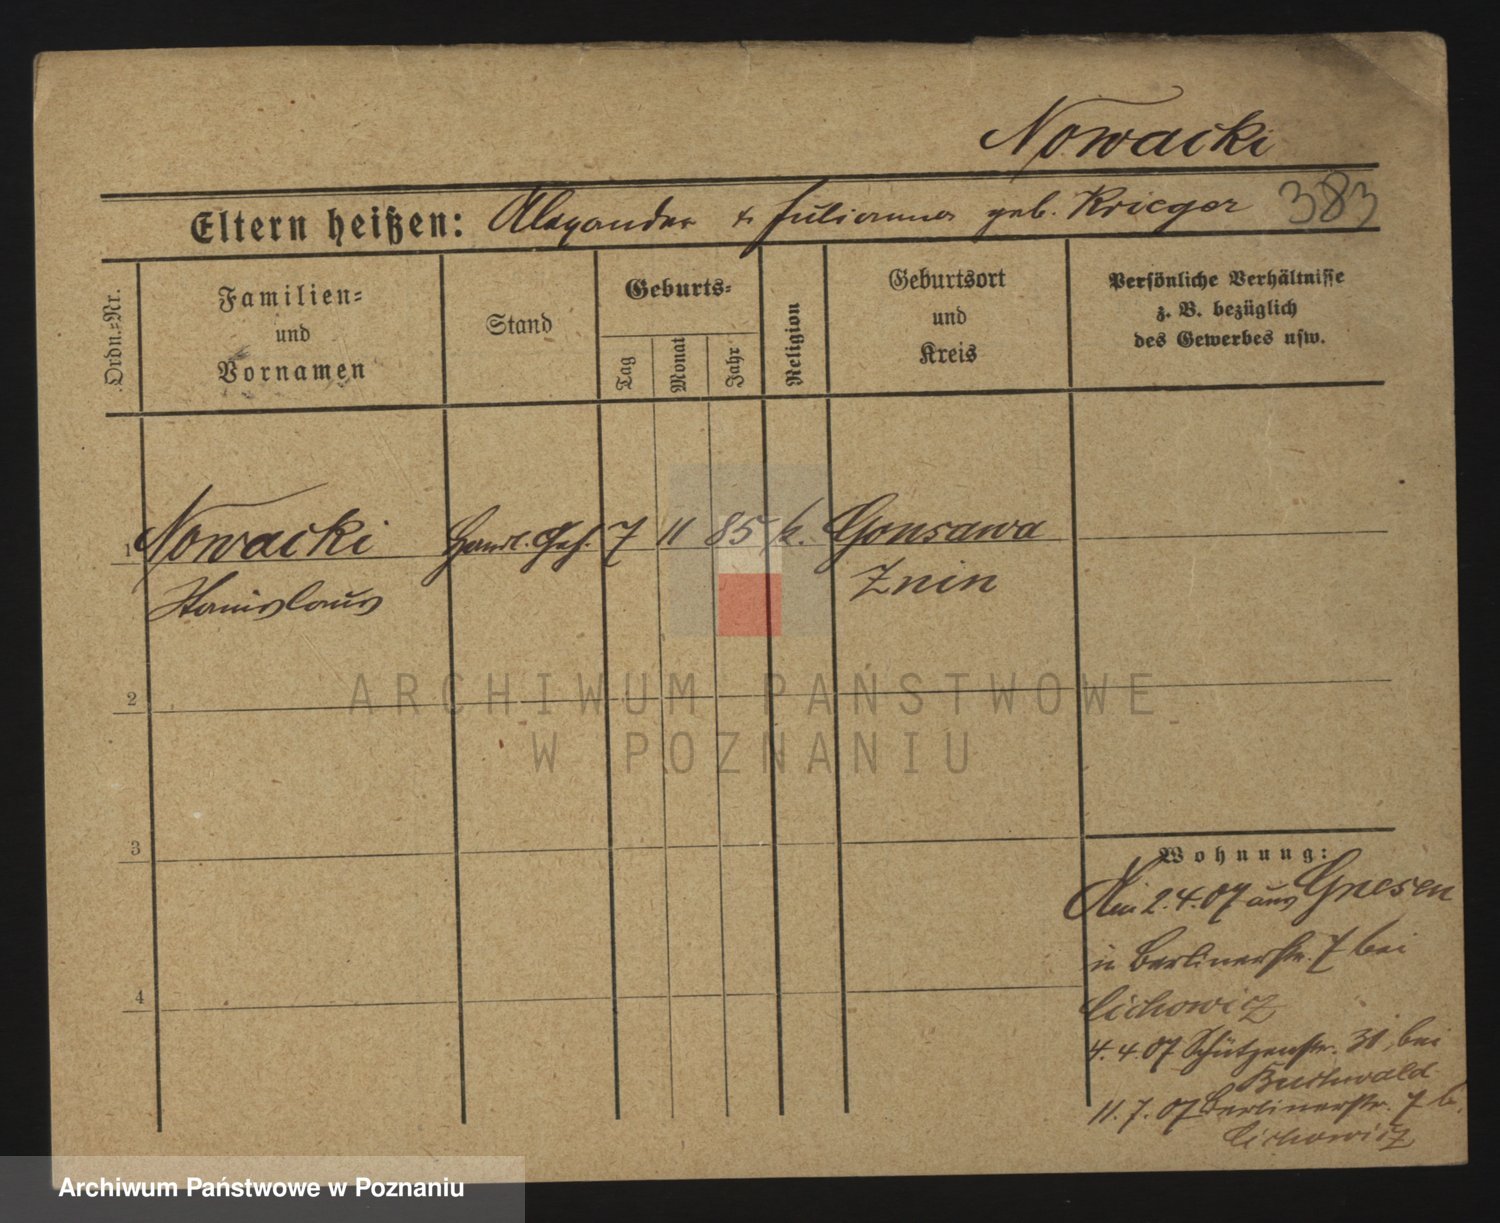 Nowacki
Eltern heißen: Alexander & Julianna geb. Krieger 383
Ordn.-Nr.
Familien-
und
Vornamen
Stand
Geburts-
Tag
Monat
Jahr
Religion
Geburtsort
und
Kreis
Persönliche Verhältnisse
z. B. bezüglich
des Gewerbes usw.
1 Nowacki Handl. Geh. 7 11 85 k. Gonsawa
Stanislaus Znin
2
3
4
Wohnung:
2.4.07 aus Gnesen
n Berlinerstr. 7 bei
Cichowicz
4.4.07 Schützenstr. 31, bei
Buchwald
11.7.07 Berlinerstr. 7 b.
Cichowicz
ARCHIWUM PAŃSTWOWE
W POZNANIU
Archiwum Państwowe w Poznaniu